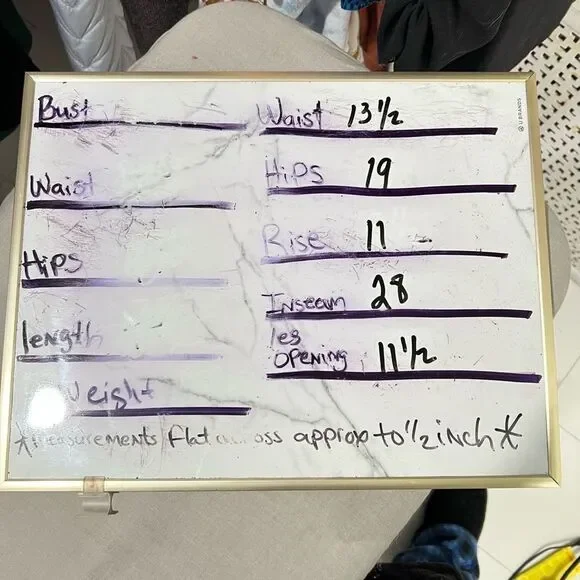 Bust
Waist
Hips
length
Weight
Waist 13 1/2
Hips 19
Rise 11
Inseam 28
leg
opening 11 1/2
*measurements flat across approx to 1/2 inch*
U BRANDS